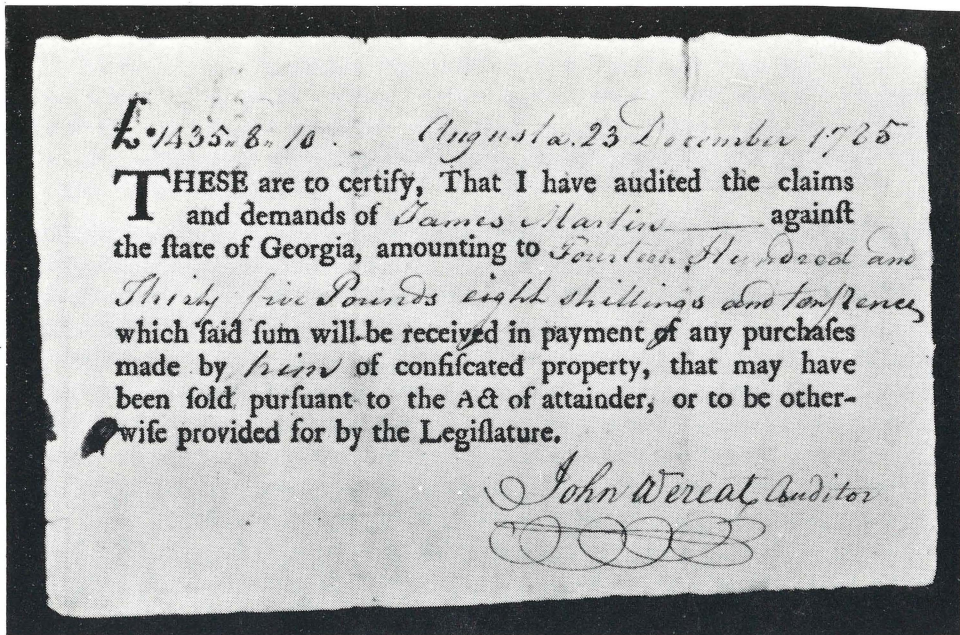 £. 1435„ 8„ 10. Augusta 23 December 1785
THESE are to certify, That I have audited the claims
and demands of James Martin againſt
the ſtate of Georgia, amounting to Fourteen Hundred and
Thirty five Pounds eight shillings and ten pence
which ſaid ſum will be received in payment of any purchaſes
made by him of confiſcated property, that may have
been ſold purſuant to the Act of attainder, or to be other-
wiſe provided for by the Legiſlature.
John Wereat, Auditor